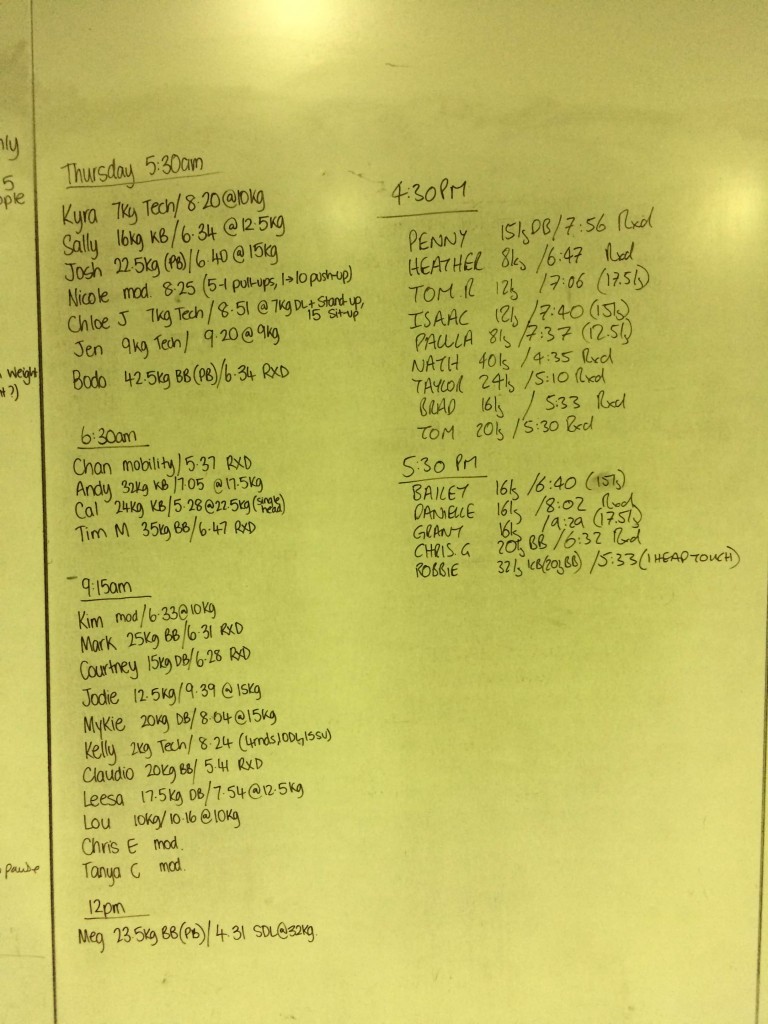 nly
5
ople
weight
t?)
pause
Thursday 5:30am
Kyra 7kg Tech/ 8.20@10kg
Sally 16kg KB/6.34 @12.5kg
Josh 22.5kg (PB)/6.40 @15kg
Nicole mod. 8.25 (5-1 pull-ups, 1→10 push-up)
Chloe J 7kg Tech/8.51 @7kg DL + Stand-up, 15 sit-up
Jen 9kg Tech/ 9.20@9kg
Bodo 42.5kg BB(PB)/6.34 RXD
6:30am
Chan mobility/5.37 RXD
Andy 32kg KB/7.05 @17.5kg
Cal 24kg KB/5.28@22.5kg (single head)
Tim M 35kg BB/6.47 RXD
9:15am
Kim mod/6.33@10kg
Mark 25kg BB/6.31 RXD
Courtney 15kg DB/6.28 RXD
Jodie 12.5kg/9.39 @15kg
Mykie 20kg DB/8.04@15kg
Kelly 2kg Tech/8.24 (4rnds, 10DL, 15SU)
Claudio 20kg BB/ 5.41 RXD
Leesa 17.5kg DB/7.54@12.5kg
Lou 10kg/10.16@10kg
Chris E mod.
Tanya C mod.
12pm
Meg 23.5kg BB(PB)/4.31 SDL@32kg.
4:30PM
PENNY 15kg DB/7:56 Rxd
HEATHER 8kg /6:47 Rxd
TOM.R 12kg /7:06 (17.5kg)
ISAAC 12kg /7:40 (15kg)
PAULA 8kg /7:37 (12.5kg)
NATH 40kg /4:35 Rxd
TAYLOR 24kg /5:10 Rxd
BRAD 16kg / 5:33 Rxd
TOM 20kg /5:30 Rxd
5:30 PM
BAILEY 16kg /6:40 (15kg)
DANIELLE 16kg /8:02 Rxd
GRANT 16kg /9:29 (17.5kg)
CHRIS.G 20kg BB /6:32 Rxd
ROBBIE 32kg KB(20kg BB) /5:33 (1 HEAD TOUCH)